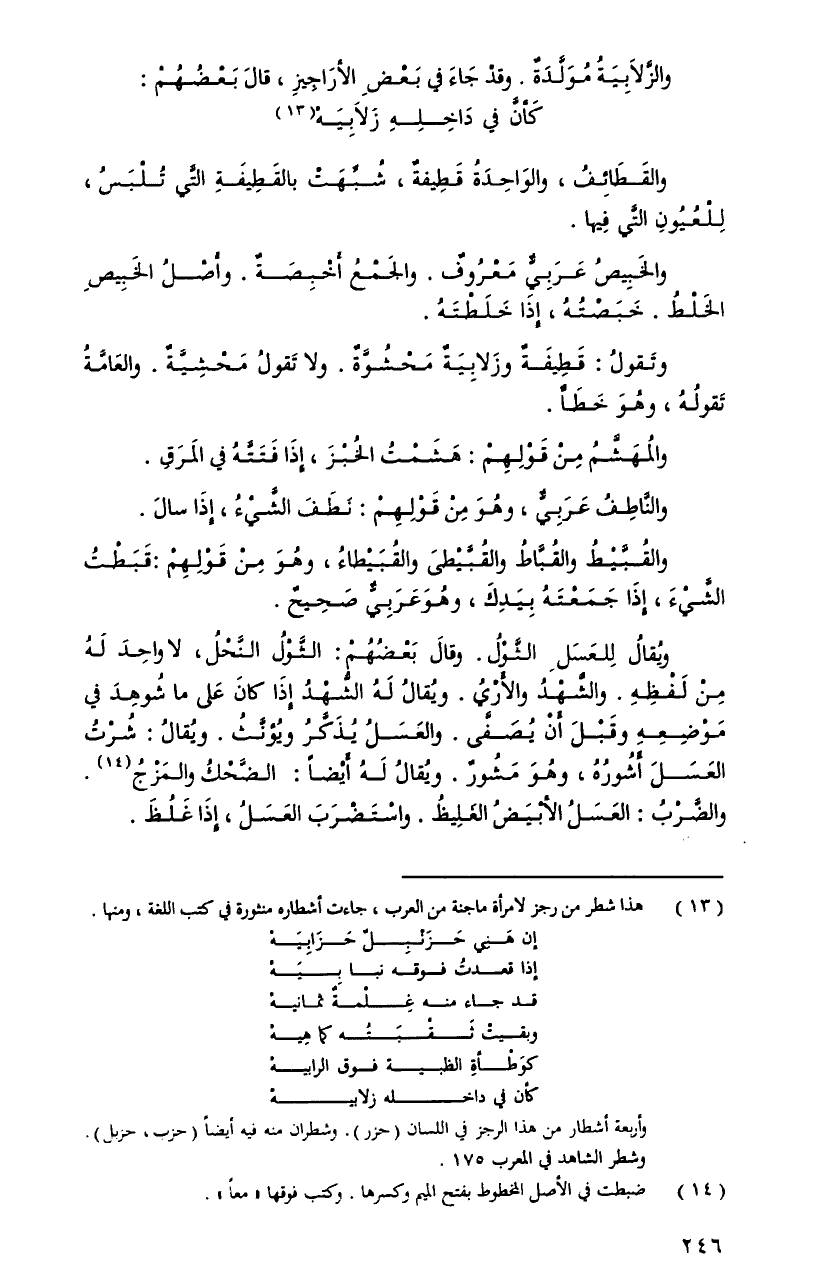 والزَّلَابِيَةُ مُوَلَّدَةٌ . وقدْ جَاءَ في بَعْضِ الأرَاجِيزِ ، قالَ بَعْضُهُمْ :
كَأنَّ في دَاخِلِهِ زَلَابِيَهْ(١٣)
والقَطَائِفُ ، والوَاحِدَةُ قَطِيفةٌ ، شُبِّهَتْ بالقَطِيفَةِ التَّي تُلْبَسُ ،
لِلْعُيُونِ التَّي فِيها .
والخَبِيصُ عَرَبِيٌّ مَعْرُوفٌ . والجَمْعُ أخْبِصَةٌ . وأصْلُ الخَبِيصِ
الخَلْطُ . خَبَصْتُهُ ، إذَا خَلَطْتَهُ .
وتَقولُ : قَطِيفَةٌ وزَلابِيَةٌ مَحْشُوَّةٌ . ولا تَقولُ مَحْشِيَّةٌ . والعَامَّةُ
تَقولُهُ ، وهُوَ خَطَأٌ .
والمُهَشَّمُ مِنْ قَوْلِهِمْ : هَشَمْتُ الخُبْزَ ، إذَا فَتَتَّهُ في المَرَقِ .
والنَّاطِفُ عَرَبِيٌّ ، وهُوَ مِنْ قَوْلِهِمْ : نَطَفَ الشَّيْءُ ، إذَا سالَ .
والقُبَّيْطُ والقُبَّاطُ والقُبَّيْطَى والقُبَيْطاءُ ، وهُوَ مِنْ قَوْلِهِمْ :قَبَطْتُ
الشَّيْءَ ، إذَا جَمَعْتَهُ بِيَدِكَ ، وهُوَعَرَبِيٌّ صَحِيحٌ .
ويُقالُ لِلعَسَلِ الثَّوْلُ. وقالَ بَعْضُهُمْ: الثَّوْلُ النَّحْلُ، لا واحِدَ لَهُ
مِنْ لَفْظِهِ . والشَّهْدُ والأرْيُ . ويُقالُ لَهُ الشُّهْدُ إذَا كانَ عَلى ما شُوهِدَ في
مَوْضِعِهِ وقَبْلَ أنْ يُصَفَّى . والعَسَلُ يُذَكَّرُ ويُؤنَّثُ . ويُقالُ : شُرْتُ
العَسَلَ أشُورُهُ ، وهُوَ مَشُورٌ . ويُقالُ لَهُ أيْضاً : الضَّحْكُ والمَزْجُ(١٤) .
والضَّرْبُ : العَسَلُ الأبْيَضُ الغَلِيظُ . واسْتَضْرَبَ العَسَلُ ، إذَا غَلُظَ .
(١٣) هذا شطر من رجز لامرأة ماجنة من العرب ، جاءت أشطاره منثورة في كتب اللغة ، ومنها .
إن هَنِي حَزَنْبِلٌ حَزَابِيَهْ
إذا قعدتُ فوقه نبا بِيَهْ
قد جاء منه غِلْمةٌ ثمانيهْ
وبقيتْ ثَقْبَتُه كما هِيهْ
كوَطْأةِ الظبية فوق الرابيهْ
كأن في داخله زلابيهْ
وأربعة أشطار من هذا الرجز في اللسان (حزر). وشطران منه فيه أيضاً (حزب ، حزبل).
وشطر الشاهد في المعرب ١٧٥ .
(١٤) ضبطت في الأصل المخطوط بفتح الميم وكسرها . وكتب فوقها « معاً » .
٢٤٦